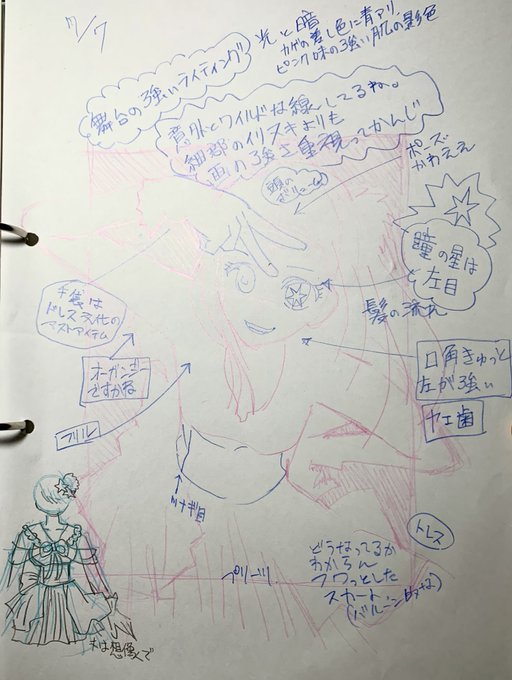 7/7
光と暗
カゲの差し色に青アリ、
ピンク味の強い肌の影色
舞台の強いライティング
意外とワイルドな線してるね。
細部のイリスキよりも
画の強さ重視ってかんじ
ポーズ
かわええ
頭の
ボリューム
瞳の星は
左目
髪の流れ
手袋は
ドレス文化の
マストアイテム
オーガンジー
ですかね
口角きゅっと
左が強い
ヤエ歯
フリル
ツナギ目
トレス
どうなってるか
わからん
フワっとした
スカート
(バルーン的な)
プリーツ
は想像で